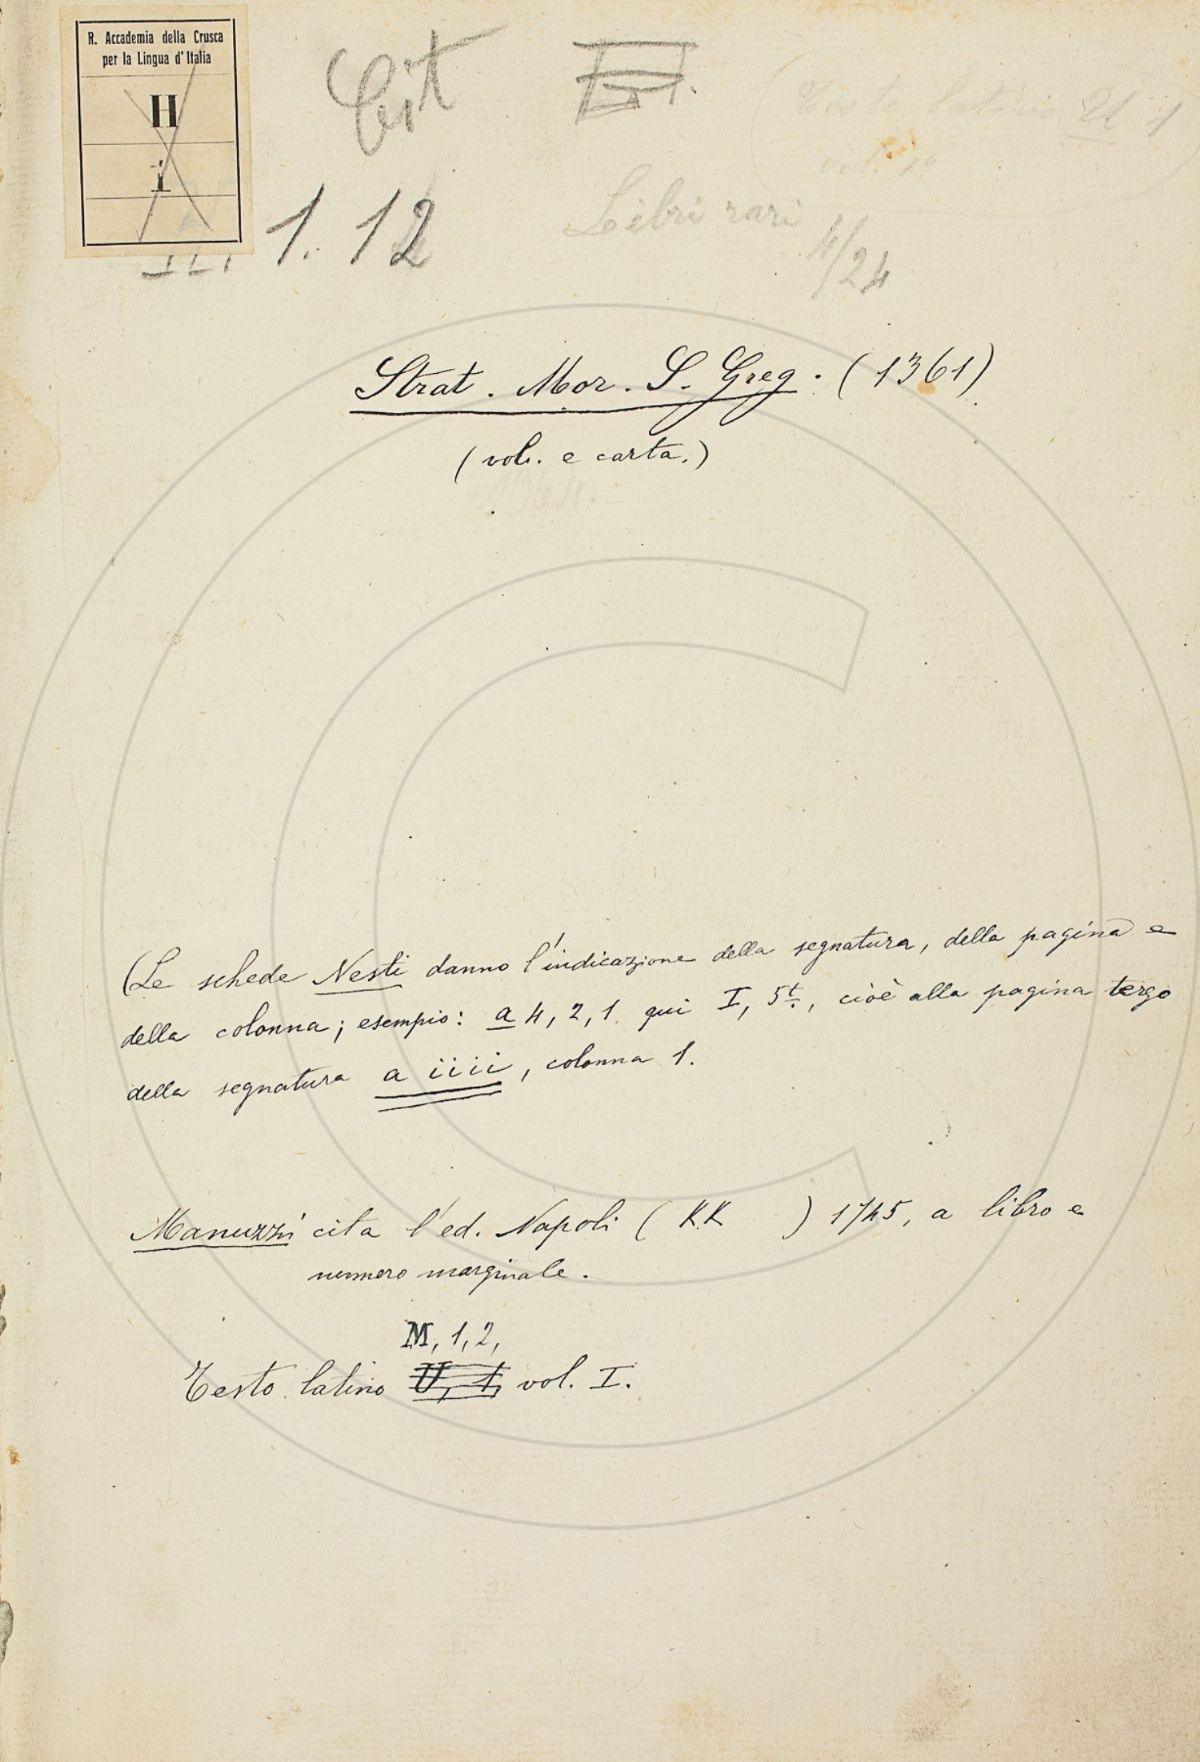 R. Accademia della Crusca
per la Lingua d'Italia
H
i
Cit
III. 1. 12
Libri rari
4/24
Strat. Mor. S. Greg. (1361)
(vol. e carta.)
(Le schede Nesti danno l'indicazione della segnatura, della pagina e
della colonna; esempio: a 4, 2, 1 qui I, 5t., cioè alla pagina tergo
della segnatura a iiii, colonna 1.
Manuzzi cita l'ed. Napoli (KK ) 1745, a libro e
numero marginale.
M, 1, 2,
Testo latino U, 1, vol. I.